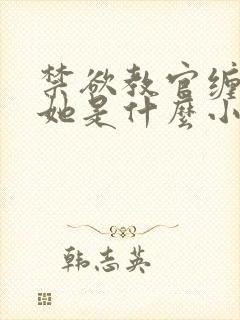 禁欲教官缠
她是什麼小
韩志英